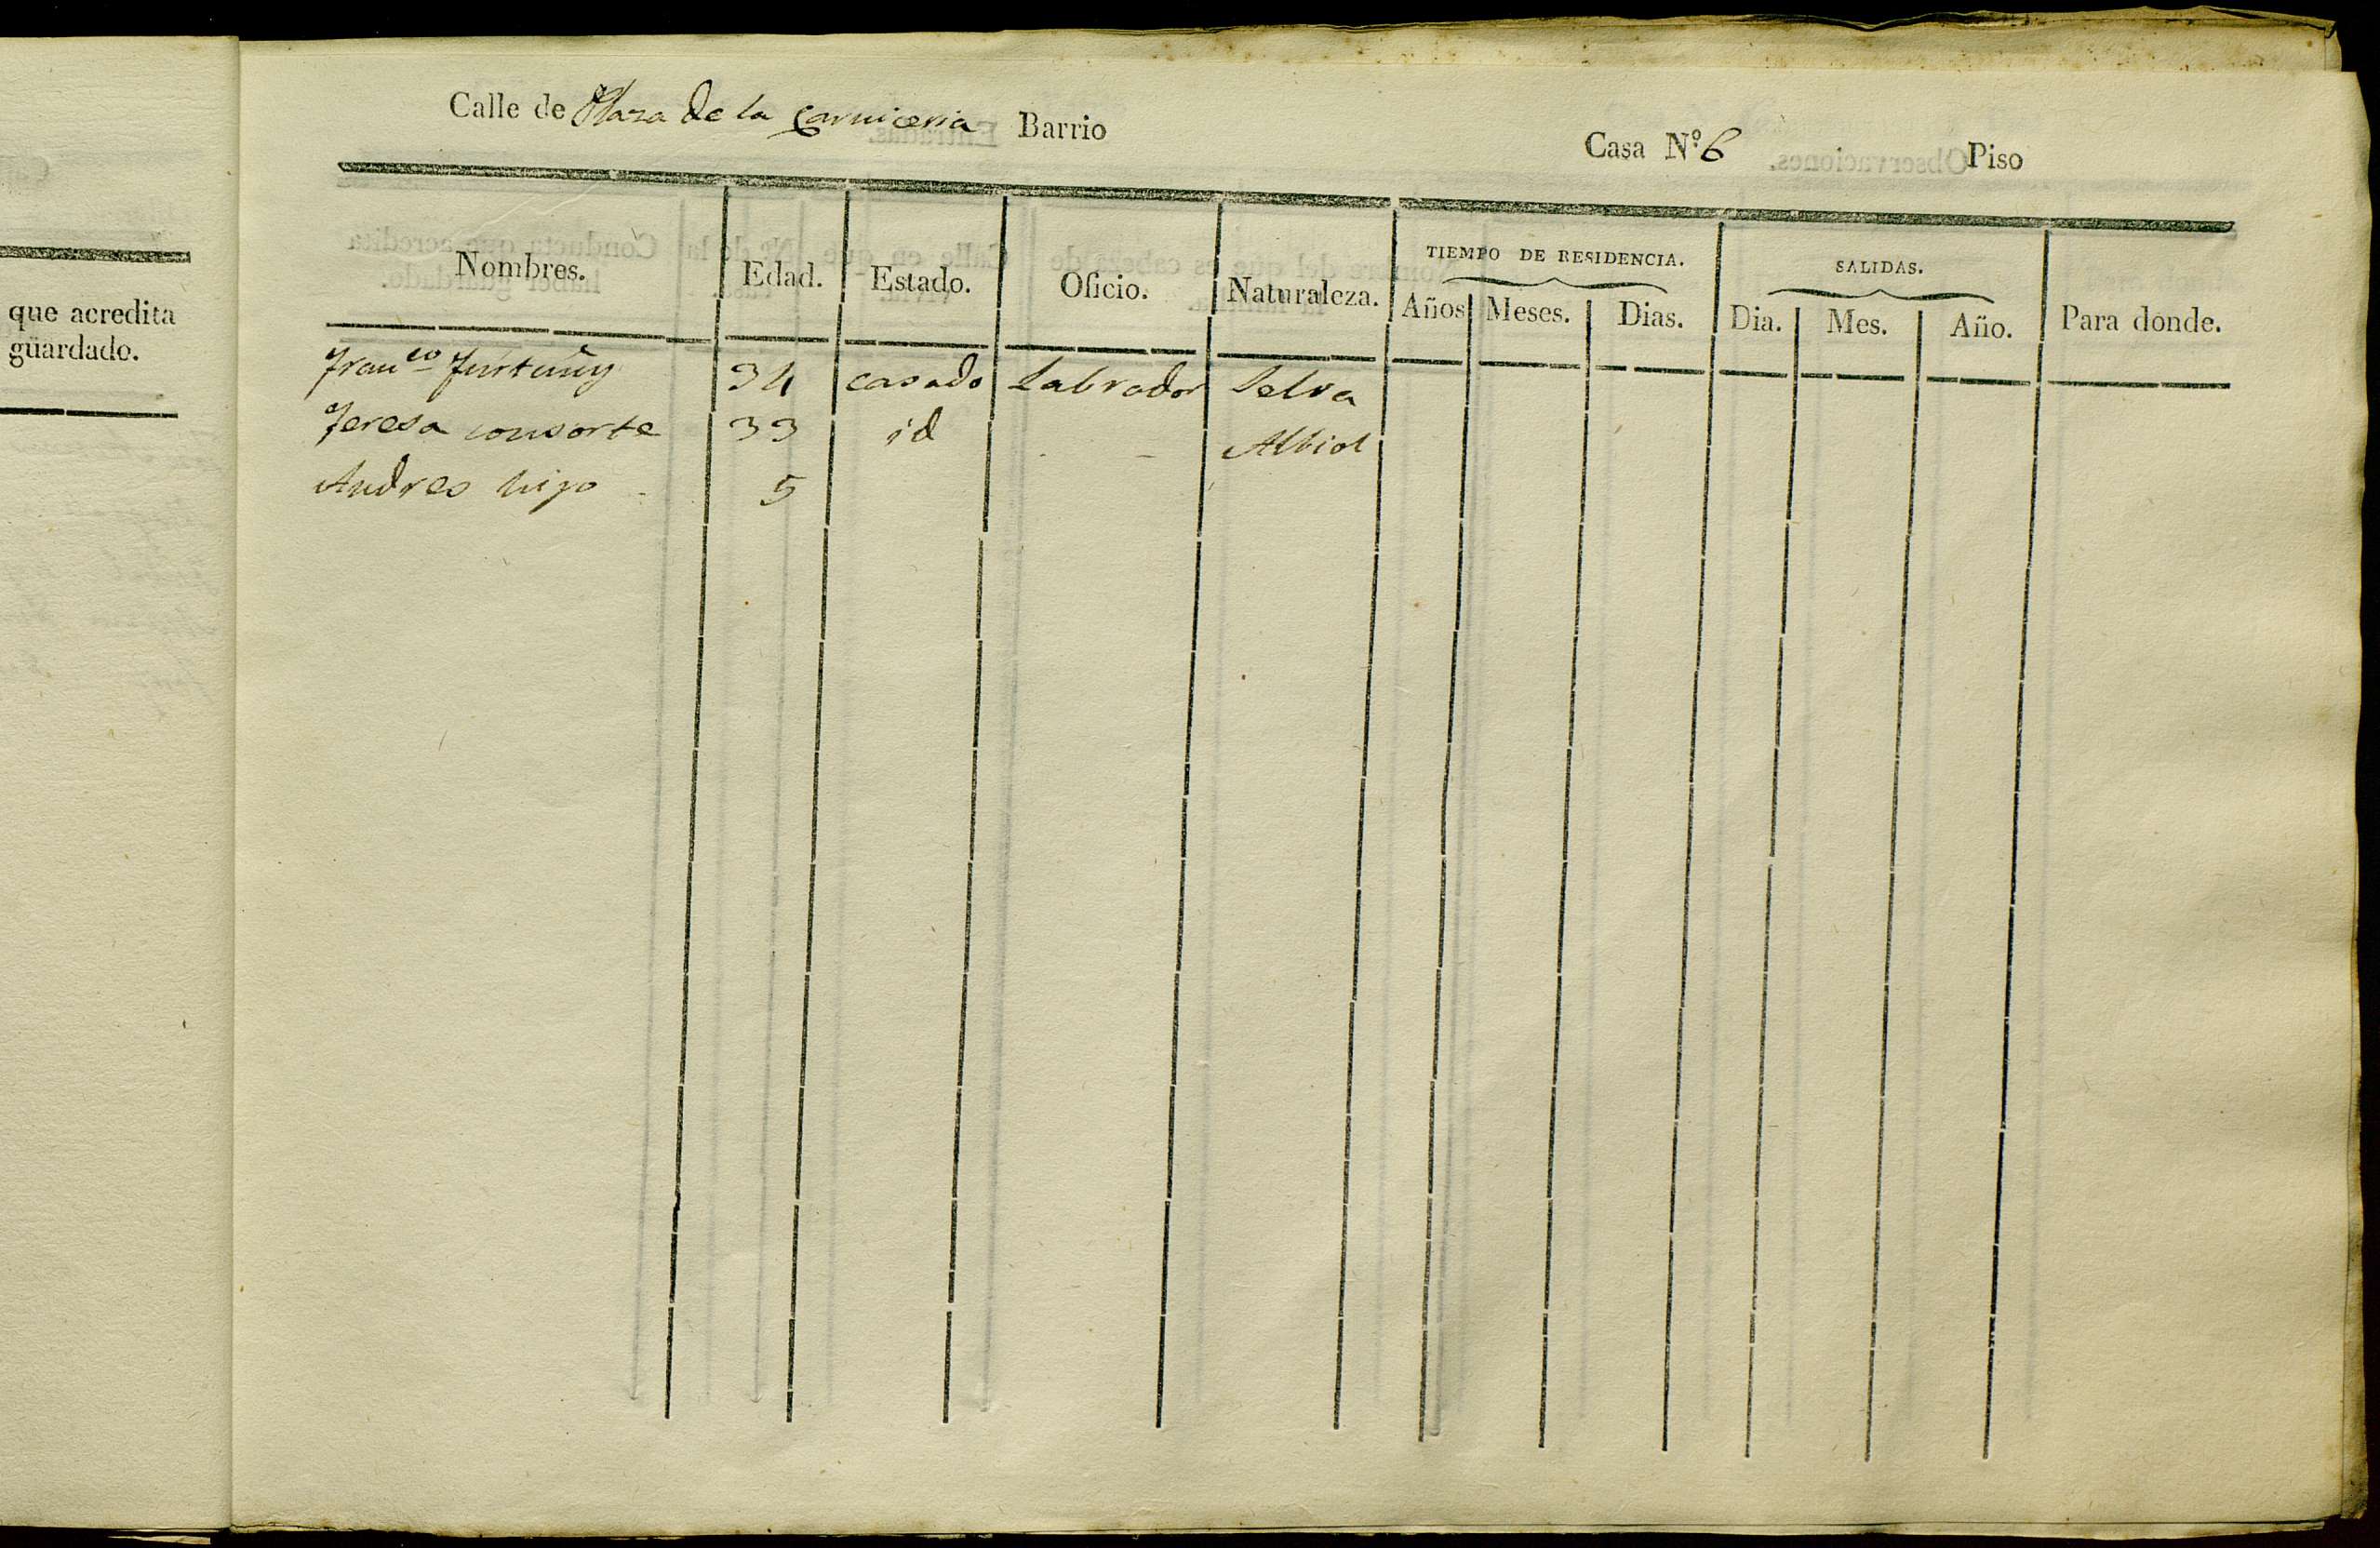 que acredita
guardado.
Calle de Plaza de la Carniceria Barrio Casa Nº 6 Piso
TIEMPO DE RESIDENCIA. SALIDAS.
Nombres. Edad. Estado. Oficio. Naturaleza. Años Meses. Dias. Dia. Mes. Año. Para donde.
Franco Furtuñy 34 casado Labrador Selva
Teresa consorte 33 id - Albiol
Andres hijo - 5